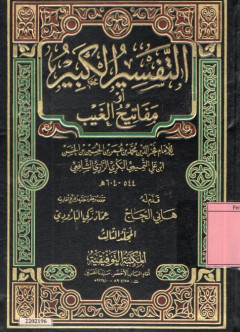 التفسير الكبير
أو
مفاتيح الغيب
للإمام فخر الدين محمد بن عمر بن الحسين بن الحسن
ابن علي التميمي البكري الرازي الشافعي
٥٤٤ - ٦٠٤ هـ
قدم له
هاني الحاج
عماد زكي البارودي
المجلد الثالث
المكتبة التوفيقية
2202196